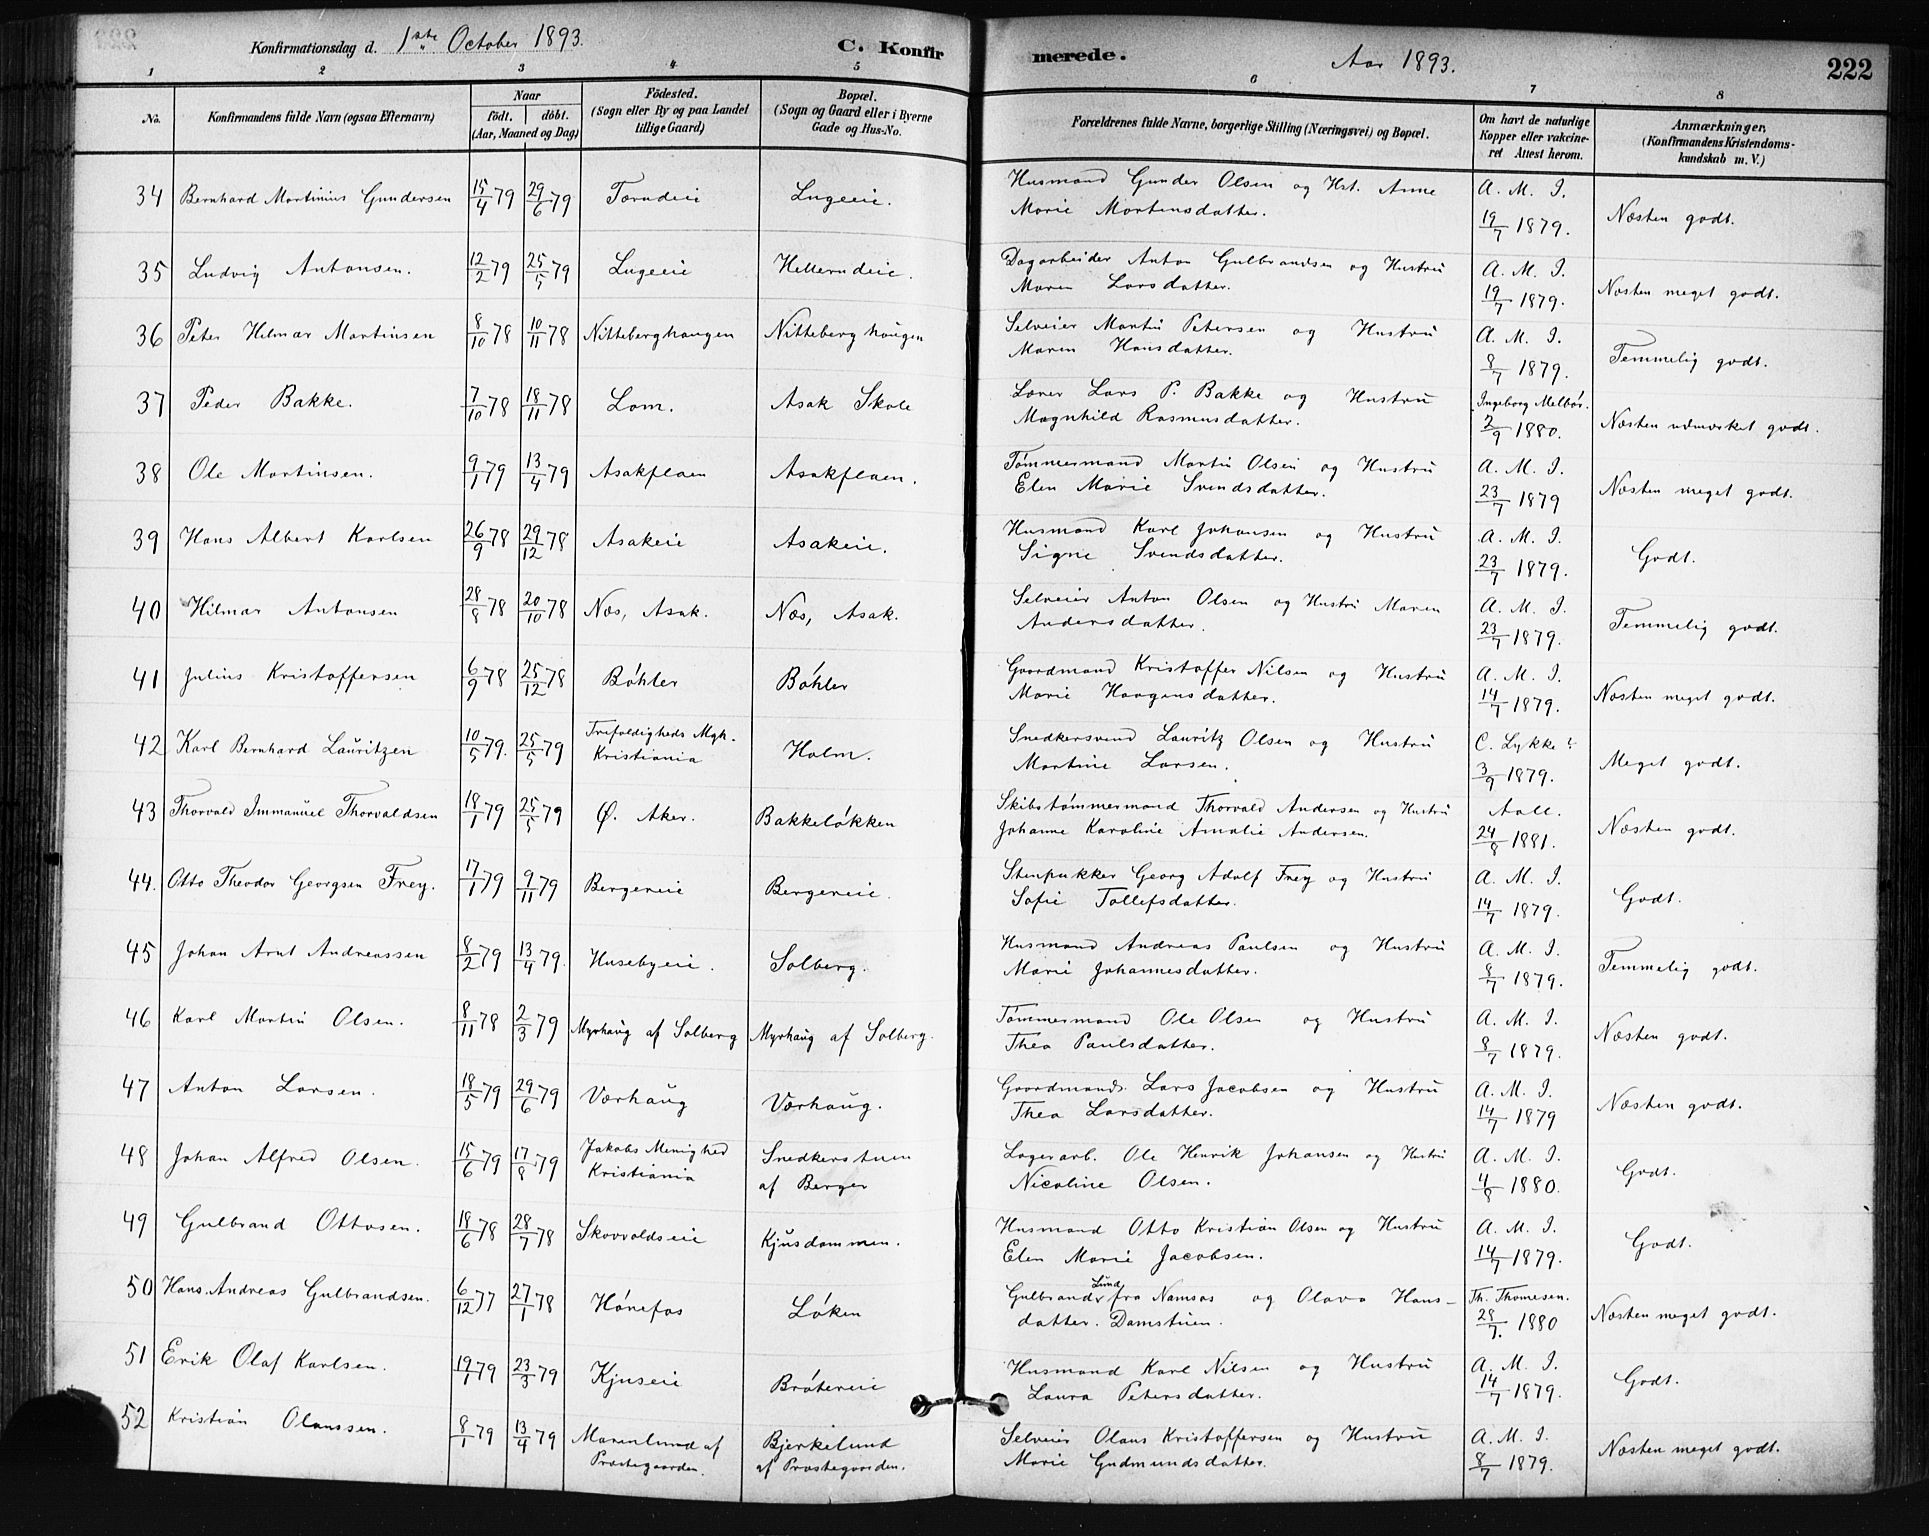 Konfirmationsdag d. 1ste October 1893.
C. Konfirmerede.
Aar 1893.
222
1 2 3 4 5 6 7 8
No.
Konfirmandens fulde Navn (ogsaa Efternavn)
Naar
födt. döbt.
(Aar, Maaned og Dag)
Födested.
(Sogn eller By og paa Landet
tillige Gaard)
Bopæl.
(Sogn og Gaard eller i Byerne
Gade og Hus-No.
Forældrenes fulde Navne, borgerlige Stilling (Næringsvei) og Bopæl.
Om havt de naturlige
Kopper eller vakcine-
ret Attest herom.
Anmærkninger,
(Konfirmandens Kristendoms-
kundskab m. V.)
34 Bernhard Martinius Gundersen 15/4 79 29/6 79 Lugeeie. Husmand Gunder Olsen og Hst. Anne A. M. I.
Marie Mortensdatter. 19/7 1879. Næsten godt.
35 Ludvig Antonsen. 12/2 79 25/5 79 Lugeeie Hellerudeie. Dagarbeider Anton Gulbrandsen og Hustru A. M. I.
Maren Larsdatter. 19/7 1879. Næsten meget godt.
36 Peter Hilmar Martinsen 8/10 78 10/11 78 Nitteberghaugen Nitteberghaugen Selveier Martin Petersen og Hustru A. M. I.
Maren Hansdatter. 8/7 1879. Temmelig godt.
37 Peder Bakke. 7/10 78 18/11 78 Lom. Asak Skole Lærer Lars P. Bakke og Hustru Ingeborg Melbös.
Magnhild Rasmusdatter. 2/9 1880. Næsten udmærket godt.
38 Ole Martinsen. 9/1 79 13/4 79 Asakflaen Asakflaen. Tømmermand Martin Olsen og Hustru A. M. I.
Elen Marie Svendsdatter. 23/7 1879 Næsten meget godt.
39 Hans Albert Karlsen 26/9 78 29/12 78 Asakeie Asakeie. Husmand Karl Johansen og Hustru A. M. I.
Signe Svendsdatter. 23/7 1879. Godt.
40 Hilmar Antonsen 28/8 78 20/10 78 Næs, Asak. Næs, Asak. Selveier Anton Olsen og Hustru Maren A. M. I.
Andersdatter. 23/7 1879. Temmelig godt.
41 Julius Kristoffersen 6/9 78 25/12 78 Bøhler Bøhler Gaardmand Kristoffer Nilsen og Hustru A. M. I.
Marie Haagensdatter. 14/7 1879. Næsten meget godt.
42 Karl Bernhard Lauritzen 10/5 79. 25/5 79 Trefoldigheds Mgh. Kristiania Holm. Snedkersvend Lauritz Olsen og Hustru C. Lykke
Martine Larsen. 3/9 1879. Meget godt.
43 Thorvald Immanuel Thorvaldsen 18/1 79 25/5 79 Ø. Aker. Bakkeløkken Skibstømmermand Thorvald Andersen og Hustru Aall.
Johanne Karoline Amalie Andersen. 24/8 1881. Næsten godt.
44. Otto Theodor Georgsen Frey. 17/1 79 9/11 79 Bergereie Bergereie. Stenpukker Georg Adolf Frey og Hustru A. M. I.
Sofie Tollefsdatter. 14/7 1879. Godt.
45 Johan Arnt Andreassen 8/2 79 13/4 79. Husebyeie. Solberg. Husmand Andreas Paulsen og Hustru A. M. I.
Marie Johannesdatter. 8/7 1879. Temmelig godt.
46 Karl Martin Olsen. 8/11 78 2/3 79 Myrhaug af Solberg Myrhaug af Solberg. Tømmermand Ole Olsen og Hustru A. M. I.
Thea Paulsdatter. 8/7 1879. Næsten godt.
47 Anton Larsen. 18/5 79 29/6 79 Værhaug Værhaug. Gaardmand. Lars Jacobsen og Hustru A. M. I.
Thea Larsdatter. 14/7 1879 Næsten godt.
48 Johan Alfred Olsen. 15/6 79 17/8 79 Jakobs Menighed Kristiania Snedkerstuen af Berger Lagerarb. Ole Henrik Johansen og Hustru A. M. I.
Nicoline Olsen. 4/8 1880. Godt.
49 Gulbrand Ottosen. 18/6 78 28/7 78 Skovvoldseie Kjusdammen. Husmand Otto Kristian Olsen og Hustru A. M. I.
Elen Marie Jacobsen. 14/7 1879. Godt.
50 Hans Andreas Gulbrandsen. 6/12 77 27/1 78 Hønefos Løken Gulbrand Lund fra Namsos og Olava Hans- Th. Thomesen.
datter. Damstuen. 28/7. 1880 Næsten meget godt.
51 Erik Olaf Karlsen. 19/1 79 23/3 79 Kjuseie Bråtereie Husmand Karl Nilsen og Hustru A. M. I.
Laura Petersdatter. 14/7 1879. Godt.
52 Kristian Olaussen. 8/1 79 13/4 79 Marenlund af Præstegaarden. Bjerkelund af Præstegaarden. Selveier Olaus Kristoffersen og Hustru A. M. I.
Marie Gudmundsdatter. 8/7 1879. Næsten meget godt.